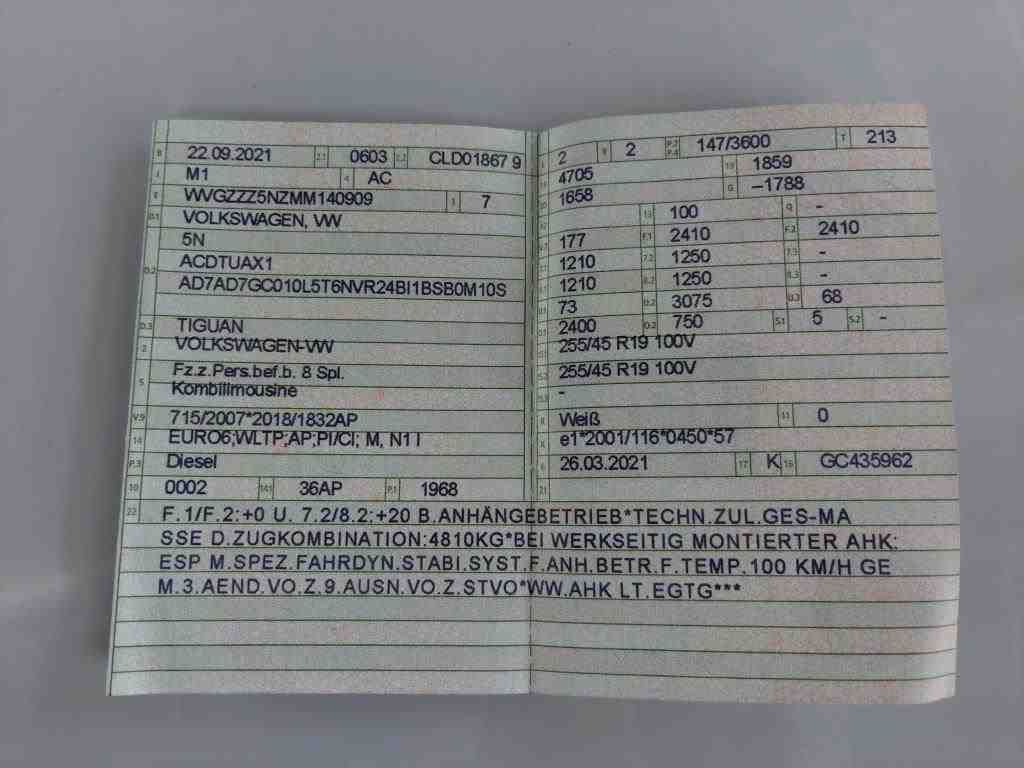 B 22.09.2021 2.1 0603 2.2 CLD01867 9
J M1 4 AC
E WVGZZZ5NZMM140909 3 7
D.1 VOLKSWAGEN, VW
5N
D.2 ACDTUAX1
AD7AD7GC010L5T6NVR24BI1BSB0M10S
D.3 TIGUAN
2 VOLKSWAGEN-VW
5 Fz.z.Pers.bef.b. 8 Spl.
Kombilimousine
V.9 715/2007*2018/1832AP
14 EURO6;WLTP;AP;PI/CI; M, N1 I
P.3 Diesel
10 0002 14.1 36AP P.1 1968
L 2 9 2 P.2 P.4 147/3600 T 213
18 4705 19 1859
20 1658 G –1788
13 100 Q -
177 F.1 2410 F.2 2410
1210 7.2 1250 7.3 -
1210 8.2 1250 8.3 -
73 U.2 3075 U.3 68
2400 O.2 750 S.1 5 S.2 -
255/45 R19 100V
255/45 R19 100V
-
R Weiß 11 0
K e1*2001/116*0450*57
6 26.03.2021 17 K 16 GC435962
21
22 F.1/F.2:+0 U. 7.2/8.2:+20 B.ANHÄNGEBETRIEB*TECHN.ZUL.GES-MA
SSE D.ZUGKOMBINATION:4810KG*BEI WERKSEITIG MONTIERTER AHK:
ESP M.SPEZ.FAHRDYN.STABI.SYST.F.ANH.BETR.F.TEMP.100 KM/H GE
M.3.AEND.VO.Z.9.AUSN.VO.Z.STVO*WW.AHK LT.EGTG***